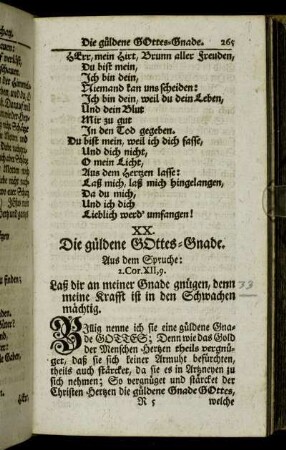 Die güldene GOttes-Gnade. 265
HErr, mein Hirt, Brunn aller Freuden,
Du bist mein,
Ich bin dein,
Niemand kan uns scheiden:
Ich bin dein, weil du dein Leben,
Und dein Blut
Mir zu gut
In den Tod gegeben.
Du bist mein, weil ich dich fasse,
Und dich nicht,
O mein Licht,
Aus dem Hertzen lasse:
Laß mich, laß mich hingelangen,
Da du mich,
Und ich dich
Lieblich werd' umfangen!
XX.
Die güldene GOttes-Gnade.
Aus dem Spruche:
2.Cor.XII,9.
Laß dir an meiner Gnade gnügen, denn
meine Krafft ist in den Schwachen
mächtig.
BIllig nenne ich sie eine güldene Gna-
de GOTTES; Denn wie das Gold
der Menschen Hertzen theils vergnü-
get, daß sie sich keiner Armuht befürchten,
theils auch stärcket, da sie es in Artzneyen zu
sich nehmen; So vergnüget und stärcket der
Christen Hertzen die güldene Gnade GOttes,
R 5 welche